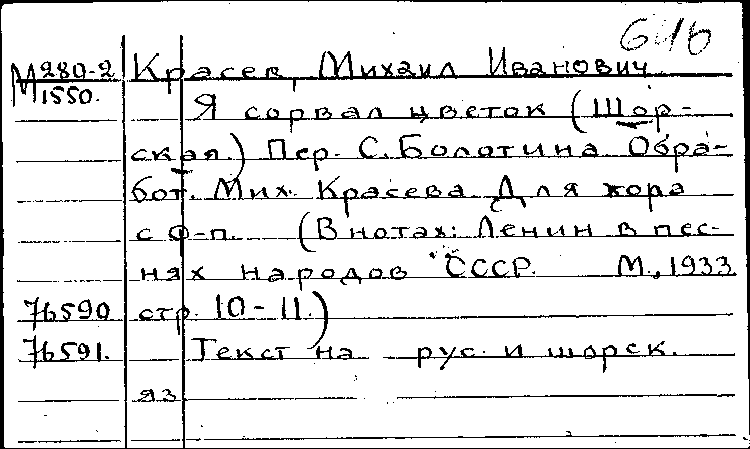 646
М280-2 Красев, Михаил Иванович
М1550. Я сорвал цветок (Шор-
ская.) Пер. С. Болотина Обра-
бот. Мих. Красева Для хора
с ф-п. (В нотах: Ленин в пес-
нях народов СССР. М., 1933
76590 стр. 10-11.)
76591. Текст на рус. и шорск.
яз